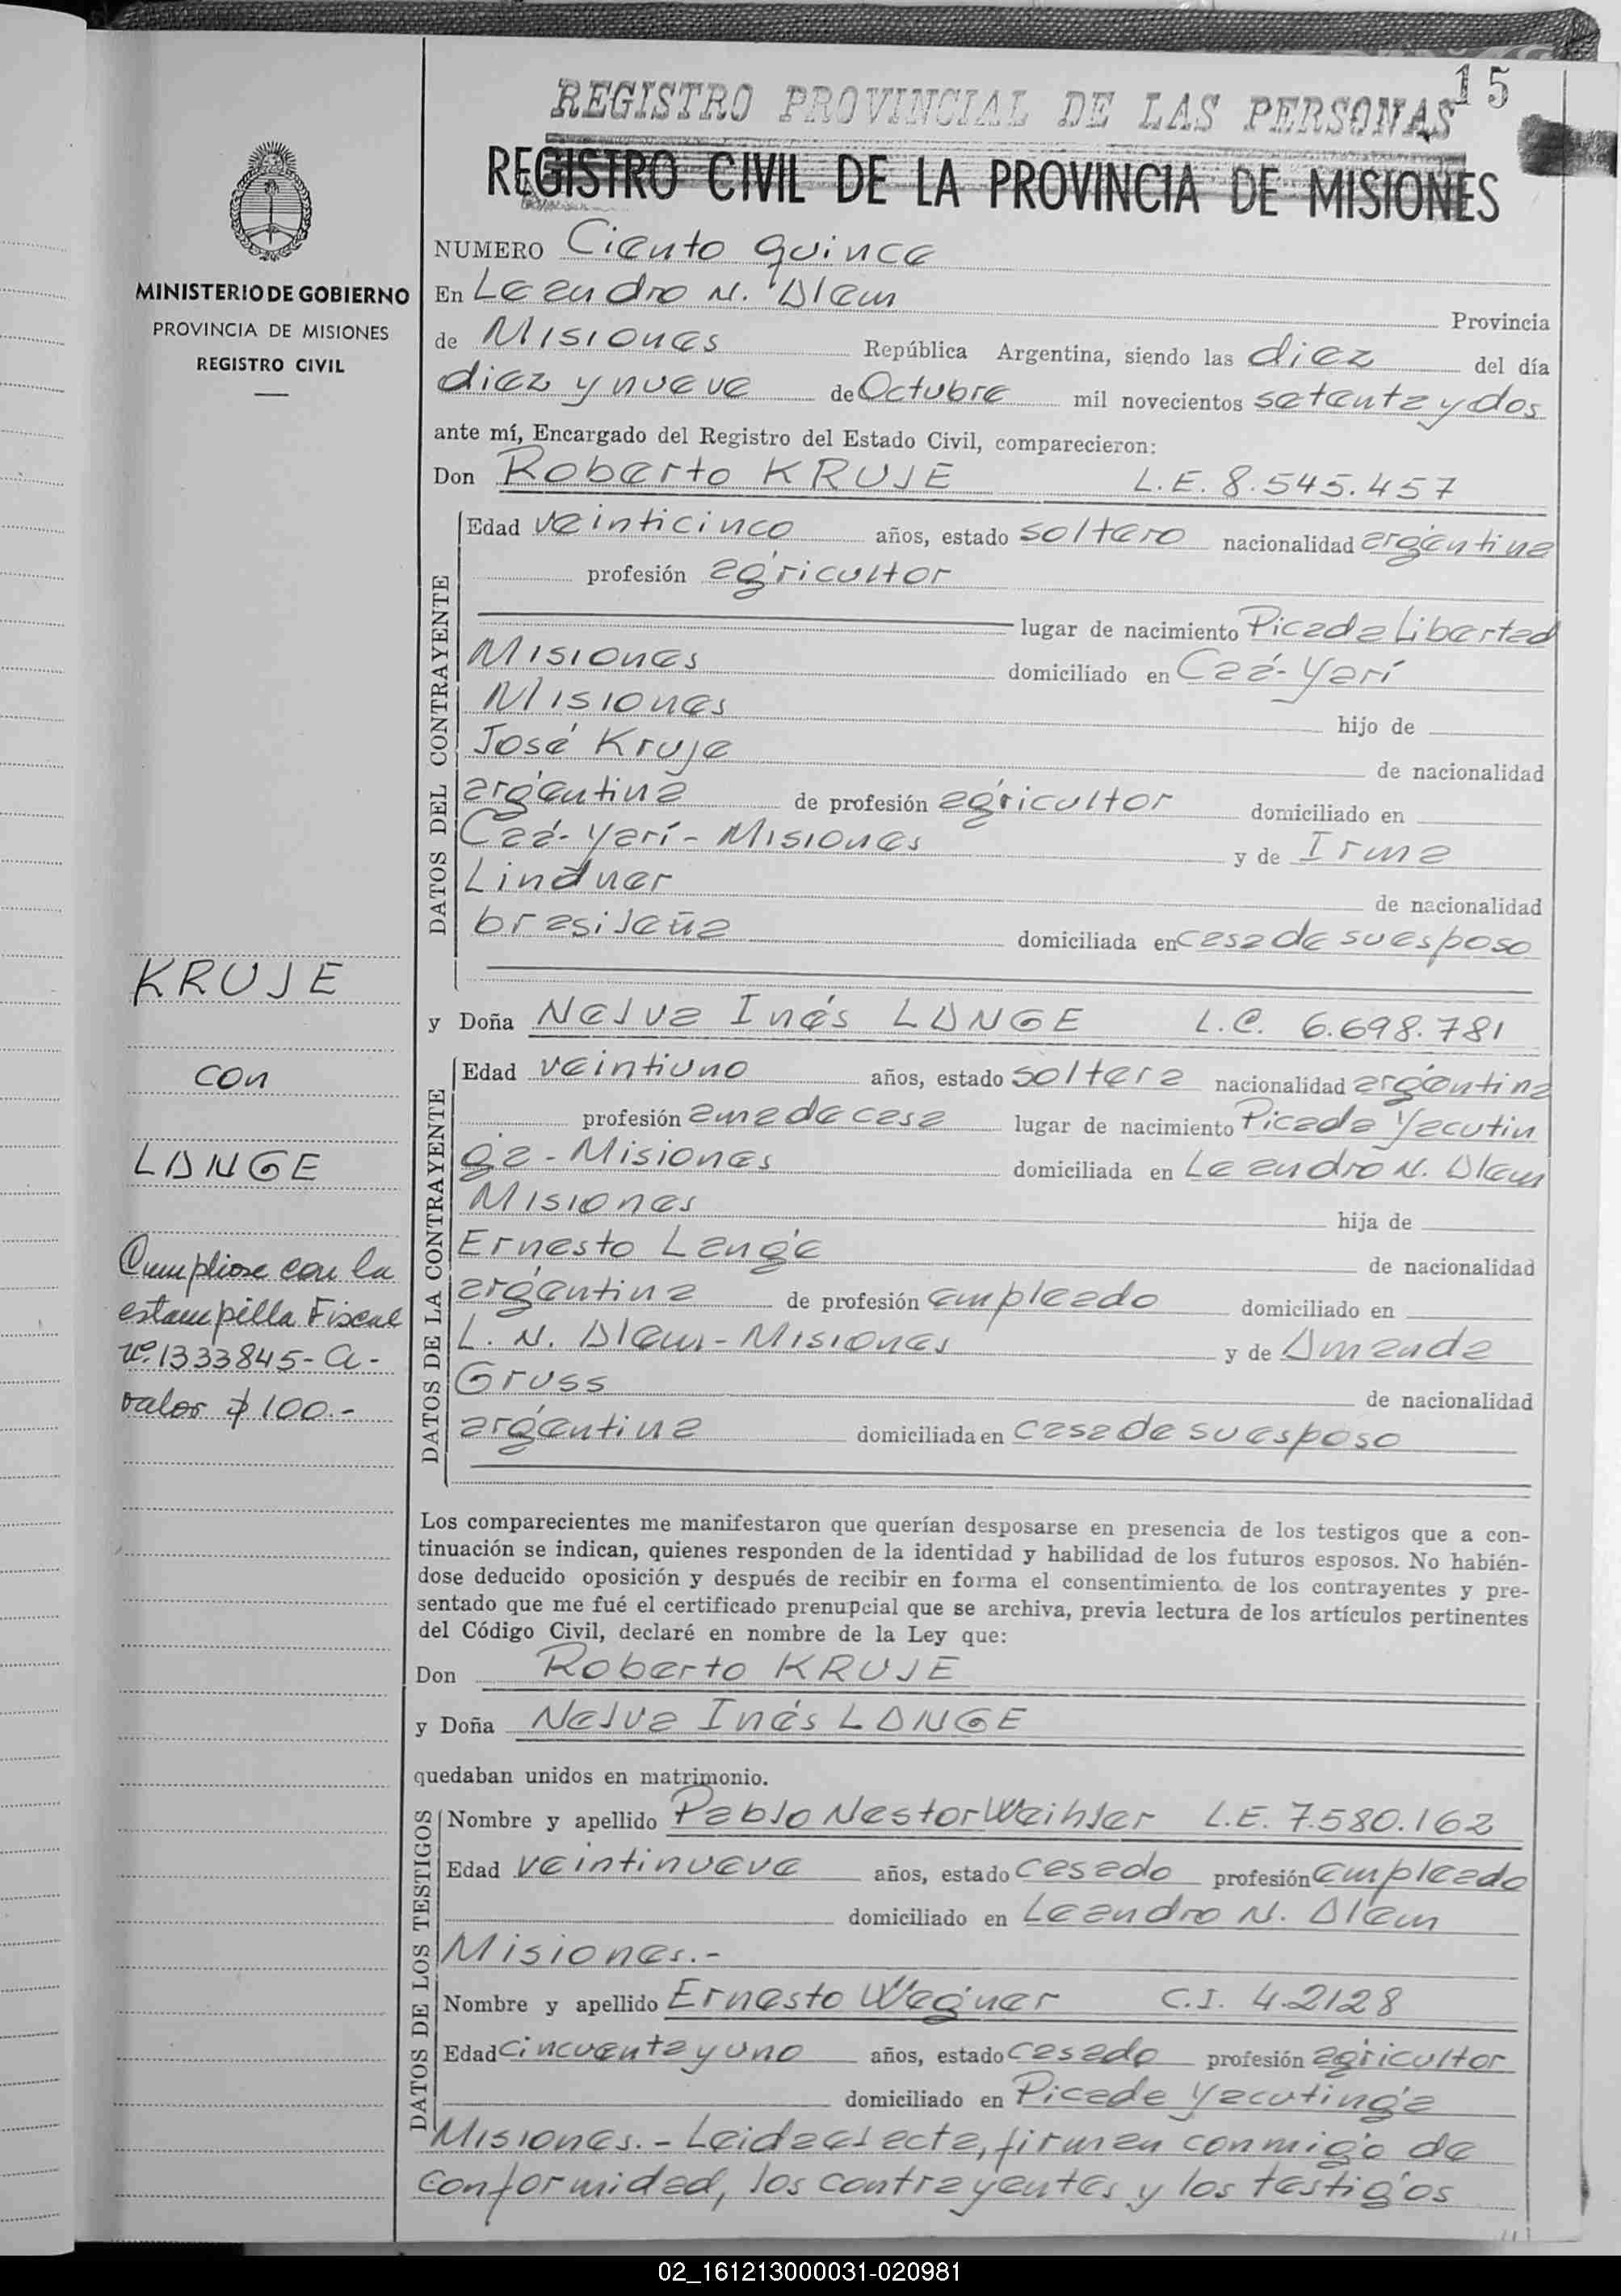 15
REGISTRO PROVINCIAL DE LAS PERSONAS
REGISTRO CIVIL DE LA PROVINCIA DE MISIONES
MINISTERIO DE GOBIERNO
PROVINCIA DE MISIONES
REGISTRO CIVIL
NUMERO Ciento quince
En Leandro N. Alem Provincia
de Misiones República Argentina, siendo las diez del día
diez y nueve de Octubre mil novecientos setenta y dos
ante mí, Encargado del Registro del Estado Civil, comparecieron:
Don Roberto KRUJE L.E. 8.545.457
DATOS DEL CONTRAYENTE
Edad veinticinco años, estado soltero nacionalidad argentina
profesión agricultor
lugar de nacimiento Picada Libertad
Misiones domiciliado en Caá-Yarí
Misiones hijo de
José Kruje de nacionalidad
argentina de profesión agricultor domiciliado en
Caá-Yarí-Misiones y de Irma
Lindner de nacionalidad
brasileña domiciliada en casa de su esposo
y Doña Nelva Inés LANGE L.C. 6.698.781
DATOS DE LA CONTRAYENTE
Edad veintiuno años, estado soltera nacionalidad argentina
profesión ama de casa lugar de nacimiento Picada Yacutin
ga-Misiones domiciliada en Leandro N. Alem
Misiones hija de
Ernesto Lange de nacionalidad
argentina de profesión empleado domiciliado en
L. N. Alem-Misiones y de Amanda
Gruss de nacionalidad
argentina domiciliada en casa de su esposo
KRUJE
con
LANGE
Cumpliose con la
estampilla Fiscal
nº. 1333845-A-
valor $ 100.-
Los comparecientes me manifestaron que querían desposarse en presencia de los testigos que a con-
tinuación se indican, quienes responden de la identidad y habilidad de los futuros esposos. No habién-
dose deducido oposición y después de recibir en forma el consentimiento de los contrayentes y pre-
sentado que me fué el certificado prenupcial que se archiva, previa lectura de los artículos pertinentes
del Código Civil, declaré en nombre de la Ley que:
Don Roberto KRUJE
y Doña Nelva Inés LANGE
quedaban unidos en matrimonio.
DATOS DE LOS TESTIGOS
Nombre y apellido Pablo Nestor Weihler L.E. 7.580.162
Edad veintinueve años, estado casado profesión empleado
domiciliado en Leandro N. Alem
Misiones.-
Nombre y apellido Ernesto Wagner C.I. 4.2128
Edad cincuenta y uno años, estado casado profesión agricultor
domiciliado en Picada Yacutinga
Misiones.- Leida el acta, firman conmigo de
conformidad, los contrayentes y los testigos
02_161213000031-020981